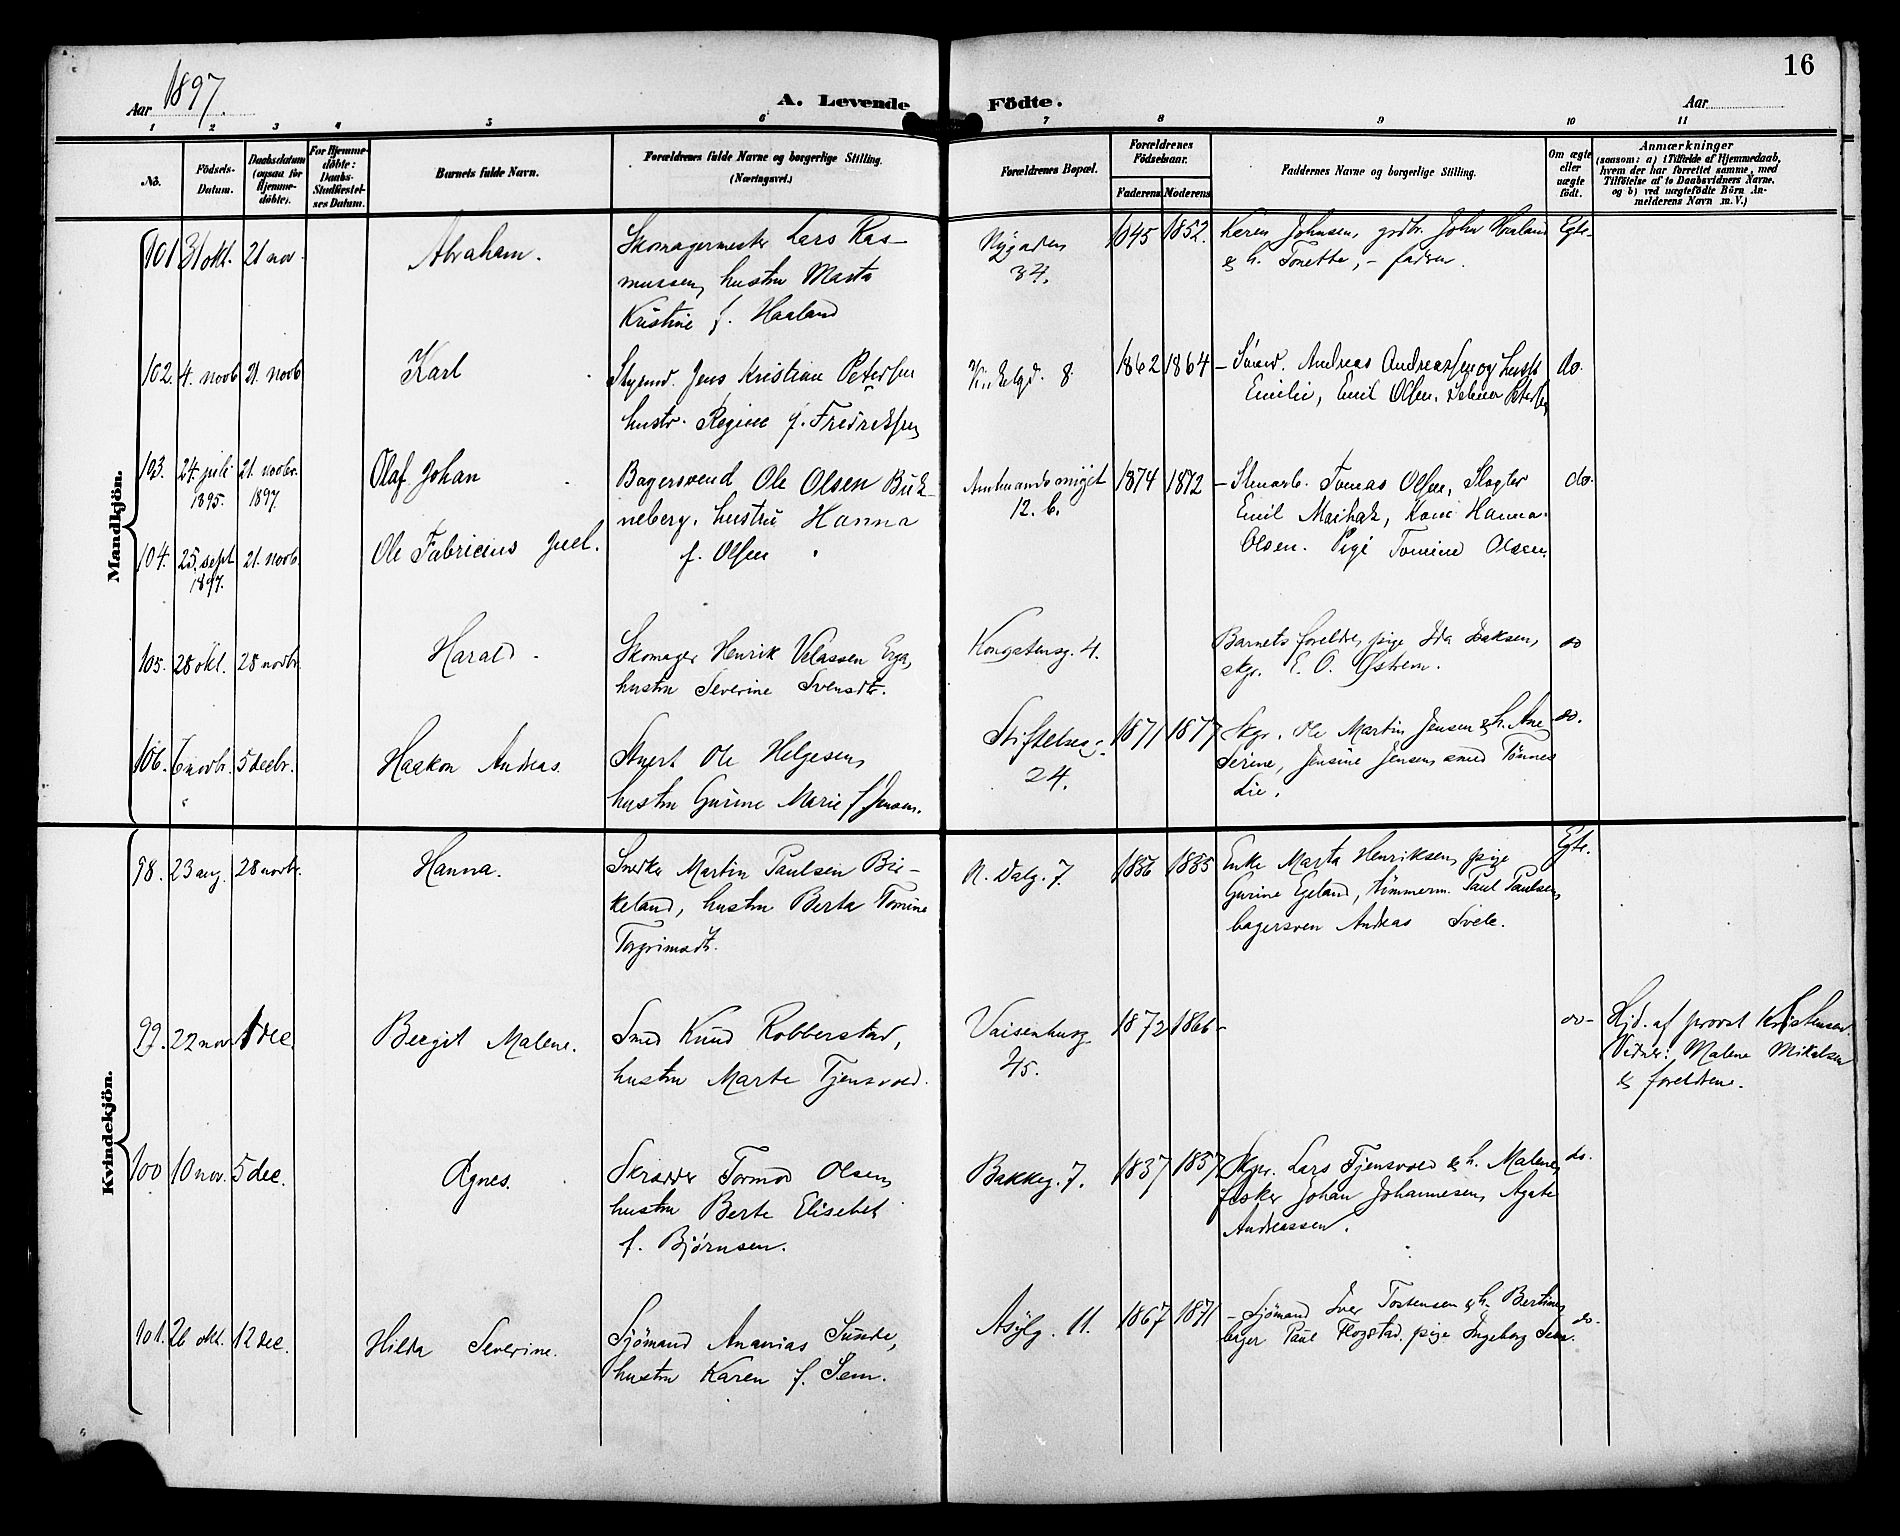 16
Aar 1897.
A. Levende Födte.
Aar
1 2 3 4 5 6 7 8 9 10 11
No.
Födsels-
Datum.
Daabsdatum
(ogsaa for
Hjemme-
döbte).
For Hjemme-
döbte:
Daabs-
Stadfæstel-
ses Datum.
Barnets fulde Navn.
Forældrenes fulde Navne og borgerlige Stilling.
(Næringsvei.)
Forældrenes Bopæl.
Forældrenes
Födselsaar.
Faderens Moderens
Faddernes Navne og borgerlige Stilling.
Om ægte
eller
uægte
födt.
Anmærkninger
(saasom: a) i Tilfælde af Hjemmedaab,
hvem der har forrettet samme, med
Tilföielse af to Daabsvidners Navne,
og b) ved uægtefödte Börn An-
melderens Navn m. V.)
Mandkjön.
101 31 okt. 21 nov. Abraham. Skomagermester Lars Ras-
mussen, hustru Marta
Kristine f. Haaland
Nygaden
34.
1845 1852. Karen Johnsen, grdbr. John Haaland
& h. Tonette, - fadren.
Egte-
102. 4. novb 21. novb Karl
Jens Kristian Petersen
hustr. Regine f. Fredriksen
8
1862 1864
Andreas Andreassen og hustr
Emilie, Emil Olsen,
do.
103. 24. juli
1895.
21. novbr.
1897.
Olaf Johan
Bagersvend Ole Olsen Birk-
neberg, hustru Hanna
f. Olsen
12. b.
1874 1872
Tomas Olsen, Slagter
Emil
Kone Hanna
Olsen. Pige Tomine Olsen.
do.
104. 25. sept
1897.
21. novb. Ole Fabricius Juel.
105. 28 okt. 28 novbr. Harald.
Skomager Henrik Velassen Erga,
hustru Severine Svensdtr.
Kongstensg. 4.
Barnets foreldre, pige Ida Isaksen,
skpr. E. O. Østrem.
do
106. 6 novbr. 5 decbr. Haakon Andreas.
Stuert Ole Helgesen,
hustru Gurine Marie f. Jensen.
Stiftelsesg.
24.
1871 1877 Skpr. Ole Martin Jensen & h. Ane
Serine, Jensine Jensen, smed Tönnes
Lie.
do.
Kvindekjön.
98. 23 aug. 28 novbr. Hanna.
Snedker Martin Paulsen Bir-
keland, hustru Berta Tomine
Torgrimsdtr.
N. Dalg. 7.
1856 1855 Enke Marta Henriksen, pige
Gurine Egeland, tömmerm. Paul Paulsen,
bagersven Andreas Svele.
Egte.
99. 22 nov 1 dec. Bergit Malene.
Smed Knud Robberstad,
hustru Marte Tjensvold.
Vaisenhusg
45.
1872 1866 -
do-
Hjd. af provst Kristensen.
Vidner: Malene Mikalsen
& foreldrene.
100 10 nov. 5 dec. Agnes.
Skrædder Tormod Olsen,
hustru Berte Elisebet
f. Björnsen.
Bakkeg. 7.
1857 1857 Skpr. Lars Tjensvold & h. Malene,
fisker Johan Johannesen, Agate
Andreassen.
do.
101. 26 okt. 12 dec. Hilda Severine.
Sjömand Ananias Sunde,
hustru Karen f. Sem.
Asylg. 11.
1867 1871 - Sjömand Iver Tostensen & h. Bertine,
bager Paul Flogstad, pige Ingeborg Sem.
do-